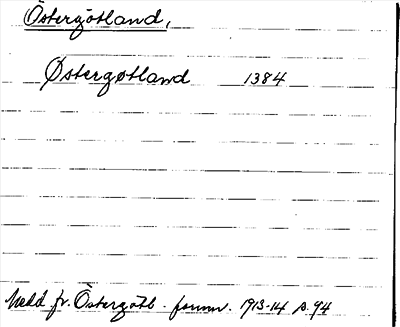 Östergötland,
Östergøtland 1384
Medd fr. Östergötl. fornm. 1913-14 p. 94